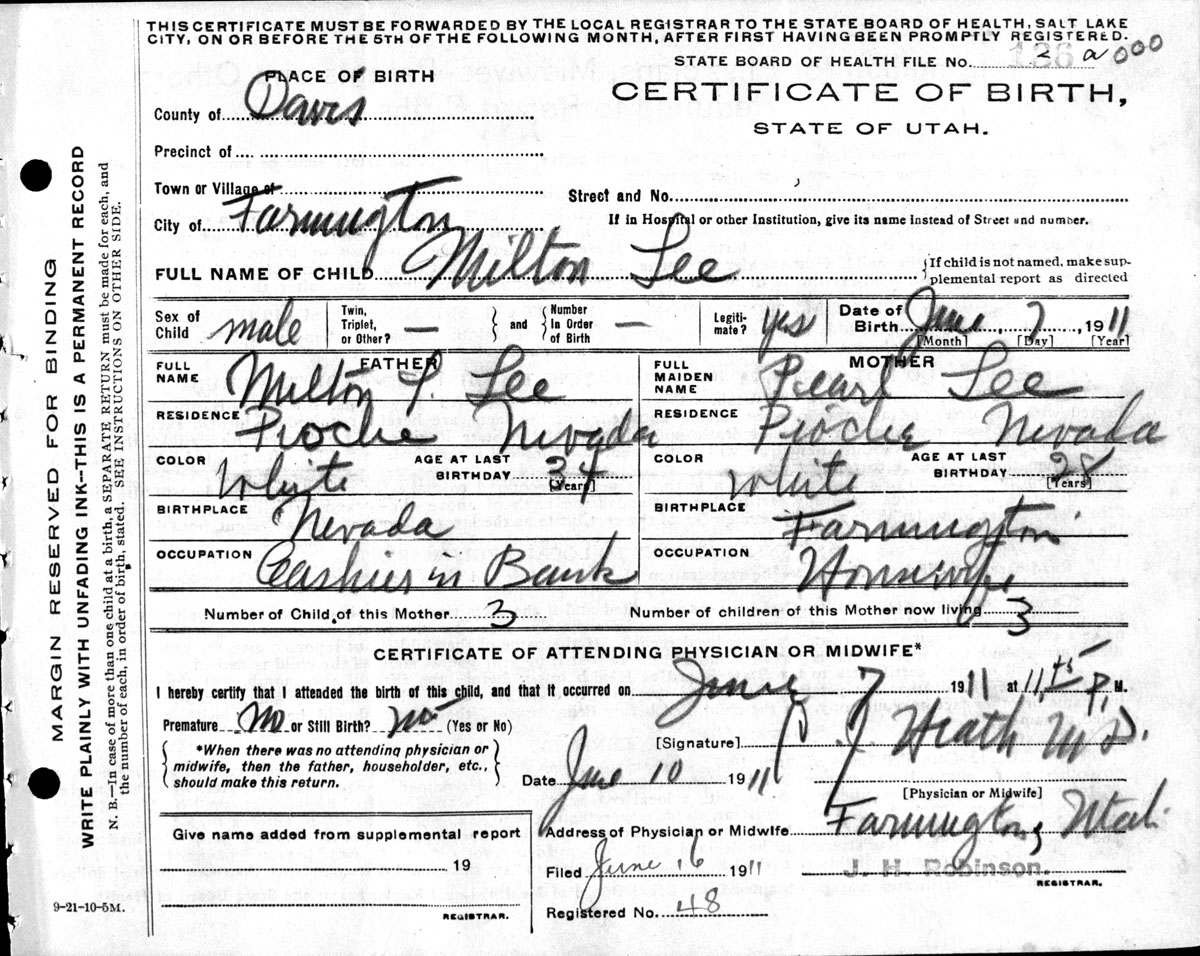 THIS CERTIFICATE MUST BE FORWARDED BY THE LOCAL REGISTRAR TO THE STATE BOARD OF HEALTH, SALT LAKE
CITY, ON OR BEFORE THE 5TH OF THE FOLLOWING MONTH, AFTER FIRST HAVING BEEN PROMPTLY REGISTERED.
STATE BOARD OF HEALTH FILE NO.
PLACE OF BIRTH
CERTIFICATE OF BIRTH,
County of Davis
STATE OF UTAH.
Precinct of
Town or Village of
Street and No.
City of Farmington
If in Hospital or other Institution, give its name instead of Street and number.
FULL NAME OF CHILD Milton Lee
If child is not named, make sup-
plemental report as directed
Sex of Child male Twin, Triplet, or Other? — and Number In Order of Birth — Legiti-mate? yes Date of Birth June, 7, 1911
[Month] [Day] [Year]
FATHER MOTHER
FULL NAME Milton L. Lee FULL MAIDEN NAME Pearl Lee
RESIDENCE Pioche Nevada RESIDENCE Pioche Nevada
COLOR White AGE AT LAST BIRTHDAY 34 [Years] COLOR White AGE AT LAST BIRTHDAY 28 [Years]
BIRTHPLACE Nevada BIRTHPLACE Farmington
OCCUPATION Cashier in Bank OCCUPATION Housewife
Number of Child of this Mother 3 Number of children of this Mother now living 3
CERTIFICATE OF ATTENDING PHYSICIAN OR MIDWIFE*
I hereby certify that I attended the birth of this child, and that it occurred on June 7 1911 at 11 P. M.
Premature No or Still Birth? no (Yes or No)
[Signature] Heath M D.
*When there was no attending physician or
midwife, then the father, householder, etc.,
should make this return.
Date June 10 1911
[Physician or Midwife]
Give name added from supplemental report
Address of Physician or Midwife Farmington, Utah.
19
Filed June 16 1911 J. H. Robinson.
REGISTRAR.
Registered No. 48
REGISTRAR.
9-21-10-5M.
MARGIN RESERVED FOR BINDING
WRITE PLAINLY WITH UNFADING INK--THIS IS A PERMANENT RECORD
N. B.—In case of more than one child at a birth, a SEPARATE RETURN must be made for each, and
the number of each, in order of birth, stated. SEE INSTRUCTIONS ON OTHER SIDE.